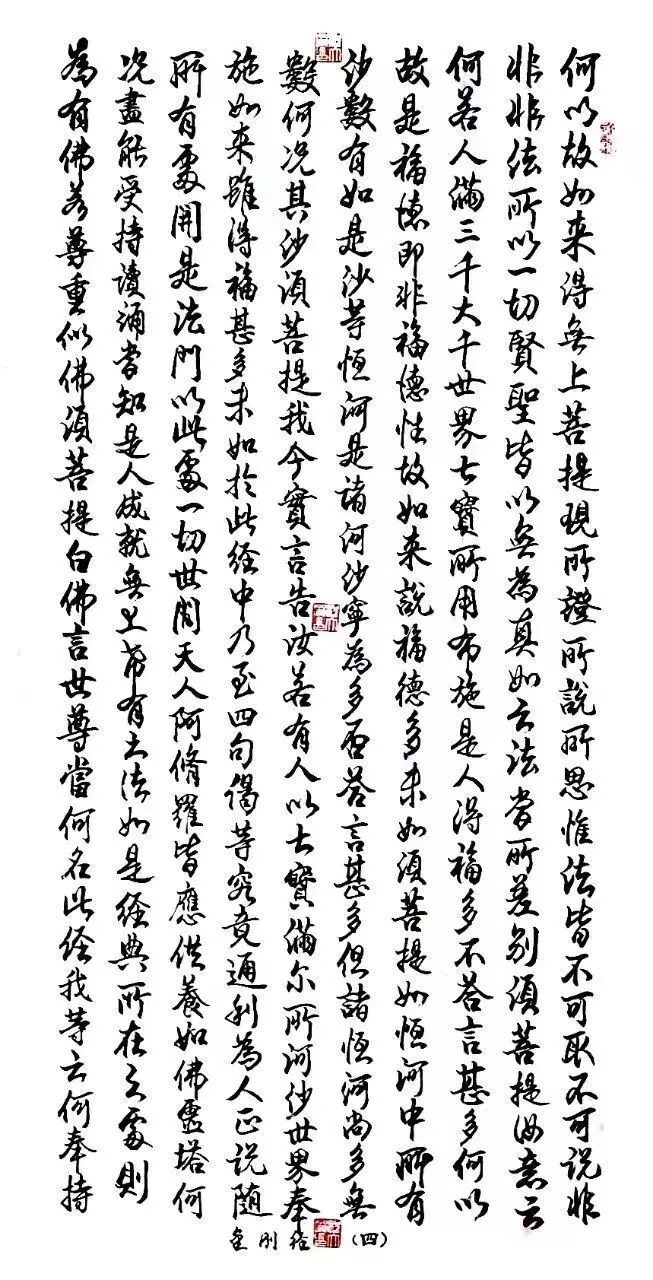 何以故如来得無上菩提現所證所說所思惟法皆不可取不可说非
非非法所以一切賢聖皆以無為真如云法當所差别須菩提汝意云
何若人滿三千大千世界七寶所用布施是人得福多不答言甚多何以
故是福德即非福德性故如来說福德多未如須菩提如恒河中所有
沙數有如是沙等恒河是諸河沙寧為多否答言甚多但諸恒河尚多無
數何况其沙須菩提我今實言告汝若有人以七寶滿尔所河沙世界奉
施如来雖得福甚多未如於此经中乃至四句偈等究竟通利為人正说随
所有處開是法門以此處一切世間天人阿脩羅皆應供養如佛靈塔何
况盡能受持讀誦當知是人成就無上希有之法如是经典所在之處則
為有佛若尊重似佛須菩提白佛言世尊當何名此经我等云何奉持
金刚经（四）